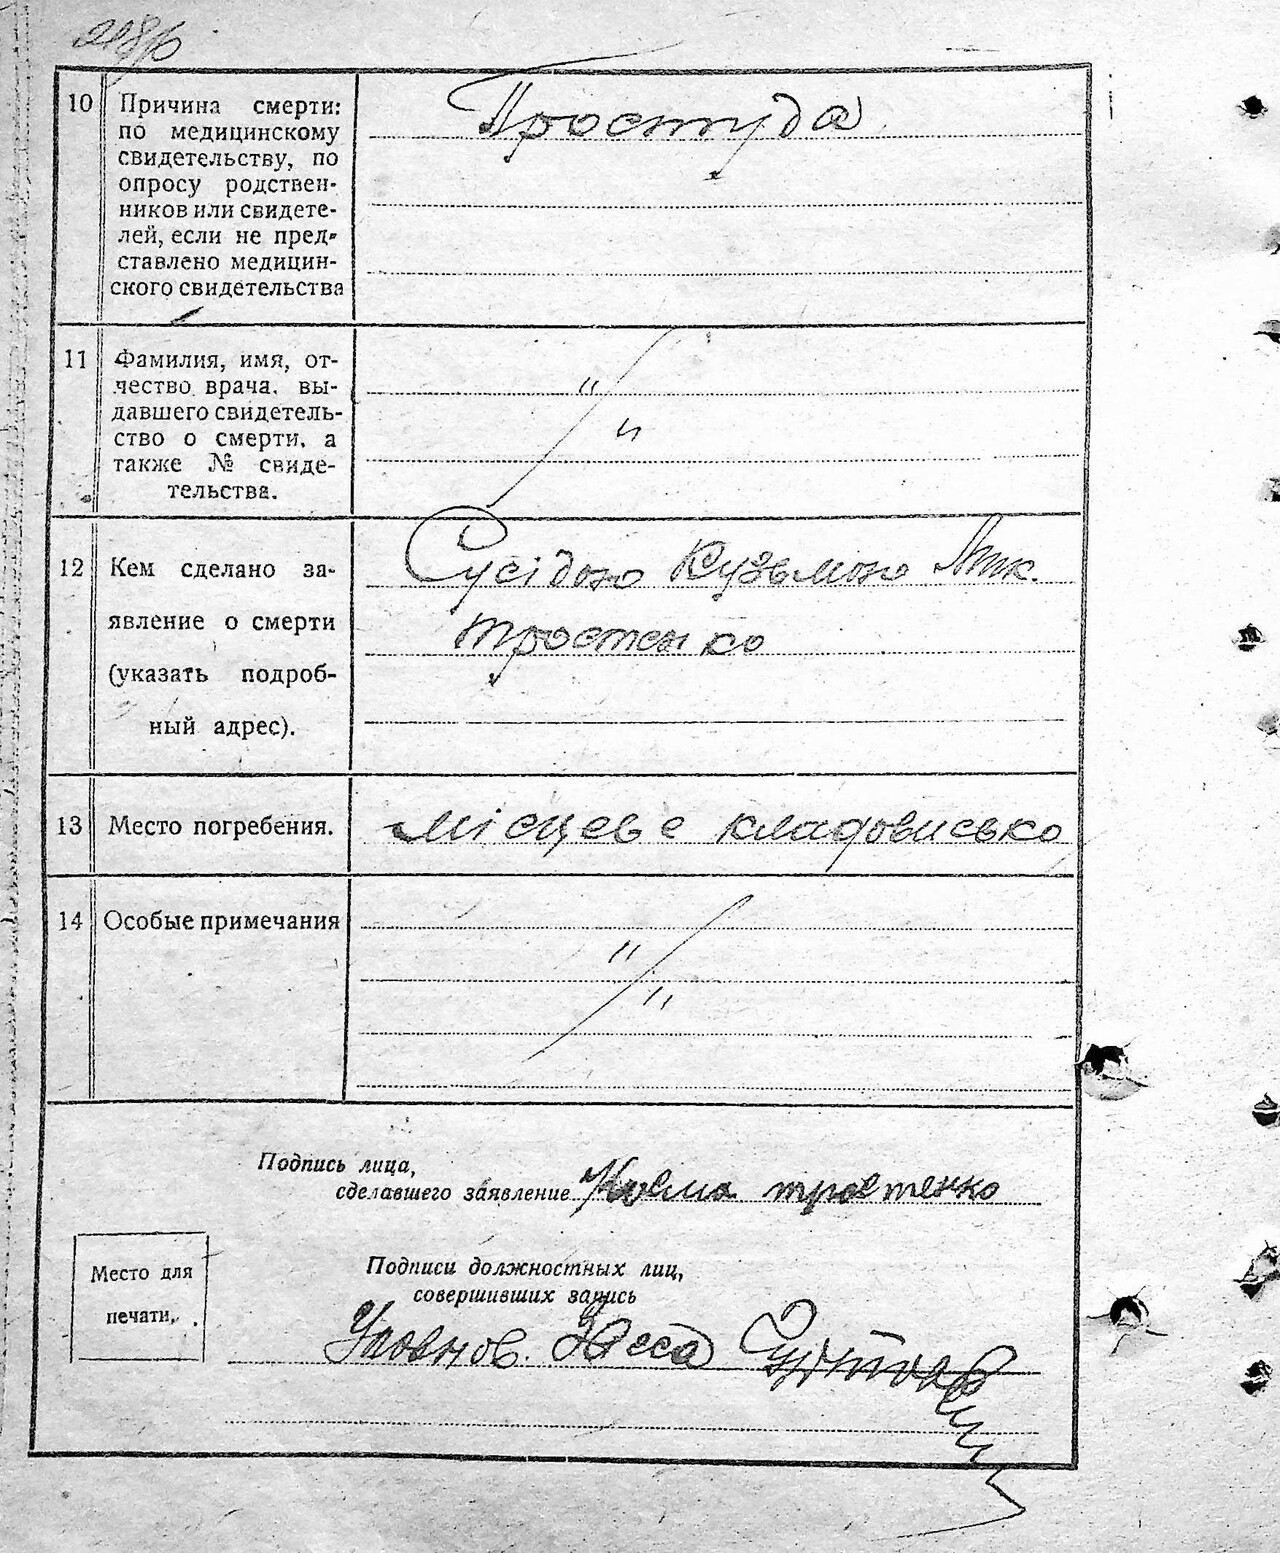 10 Причина смерти:
по медицинскому
свидетельству, по
опросу родствен-
ников или свидете-
лей, если не пред-
ставлено медицин-
ского свидетельства
Простуда
11 Фамилия, имя, от-
чество врача, вы-
давшего свидетель-
ство о смерти, а
также № свиде-
тельства.
"
"
12 Кем сделано за-
явление о смерти
(указать подроб-
ный адрес).
Сусідою Кузьмою
Тростенко
13 Место погребения.
Місцеве кладовисько
14 Особые примечания
"
"
Подпись лица,
сделавшего заявление тростенко
Место для
печати.
Подписи должностных лиц,
совершивших запись
Уповнов.